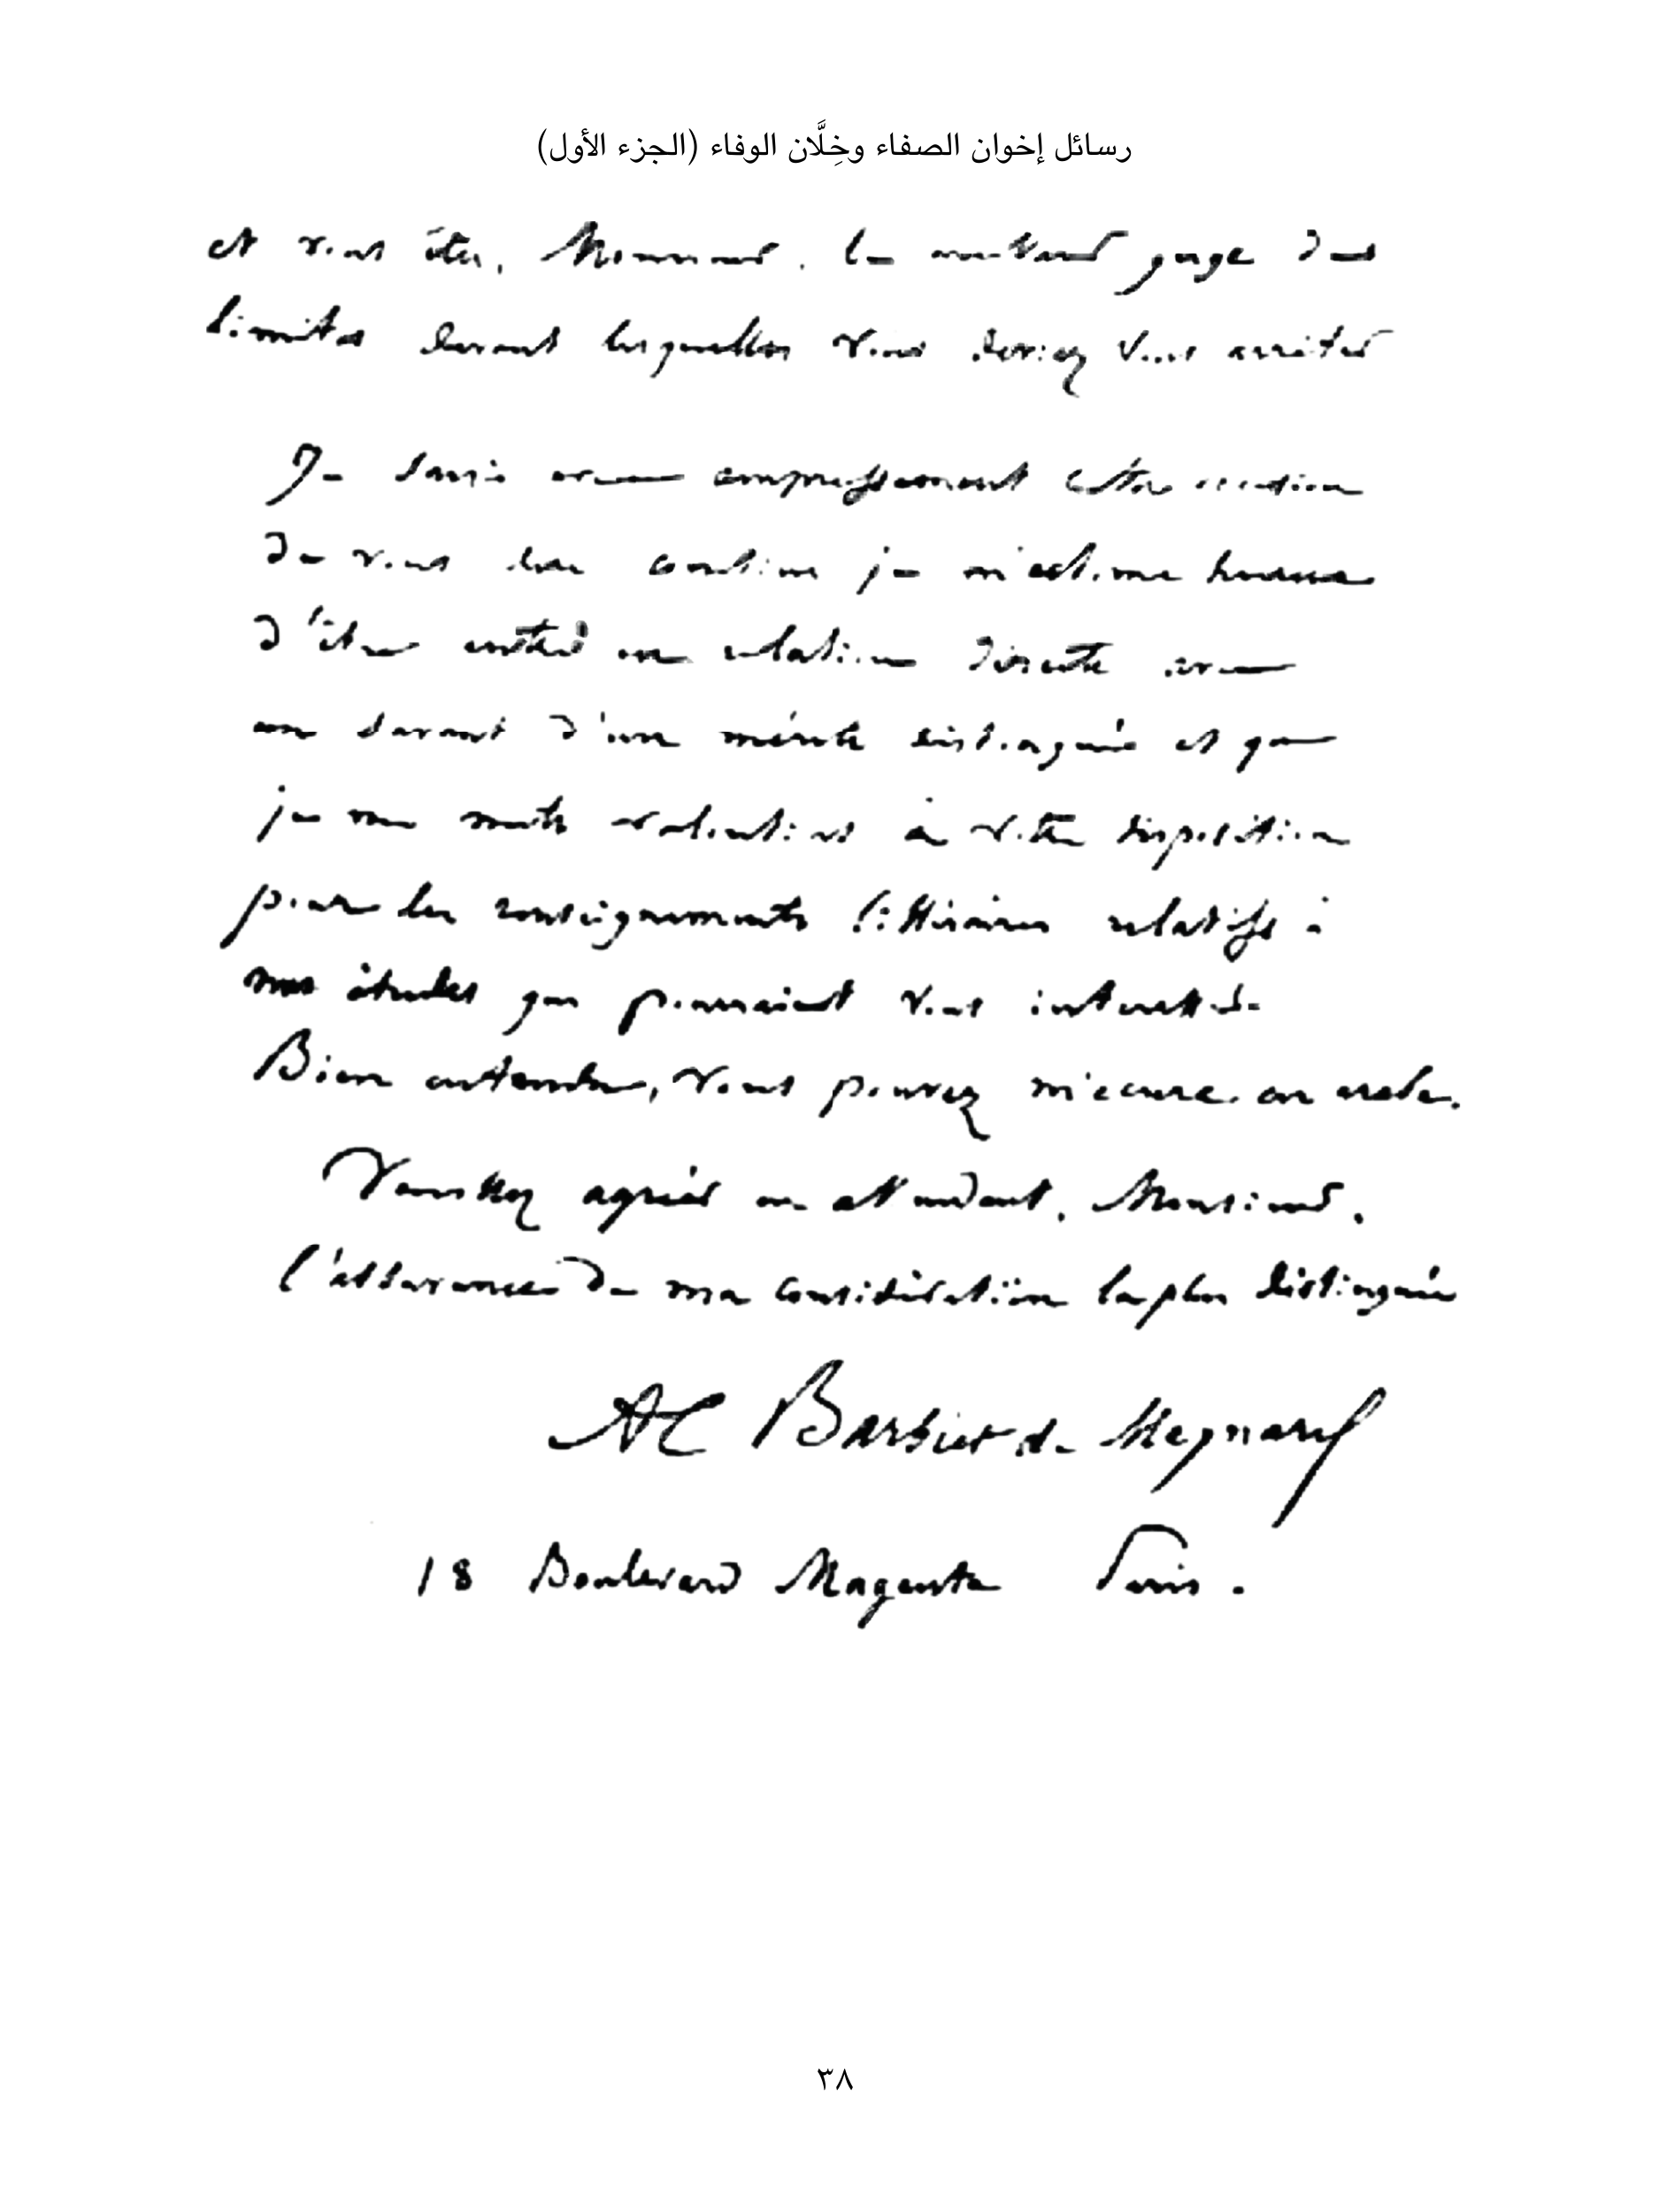 رسائل إخوان الصفاء وخِلَّان الوفاء (الجزء الأول)
et vous êtes, Monsieur, le meilleur juge des
limites devant lesquelles vous deviez vous arrêter
Je saisis avec empressement cette occasion
de vous dire combien je m'estime heureux
d'être entré en relation directe avec
un savant d'un mérite distingué et que
je me mets volontiers à votre disposition
pour les renseignements littéraires relatifs à
nos études qui pourraient vous intéresser
Bien entendu, vous pouvez m'écrire en arabe.
Veuillez agréer en attendant, Monsieur,
l'assurance de ma considération la plus distinguée
AC Barbier de Meynard
18 Boulevard Magenta Paris.
٣٨